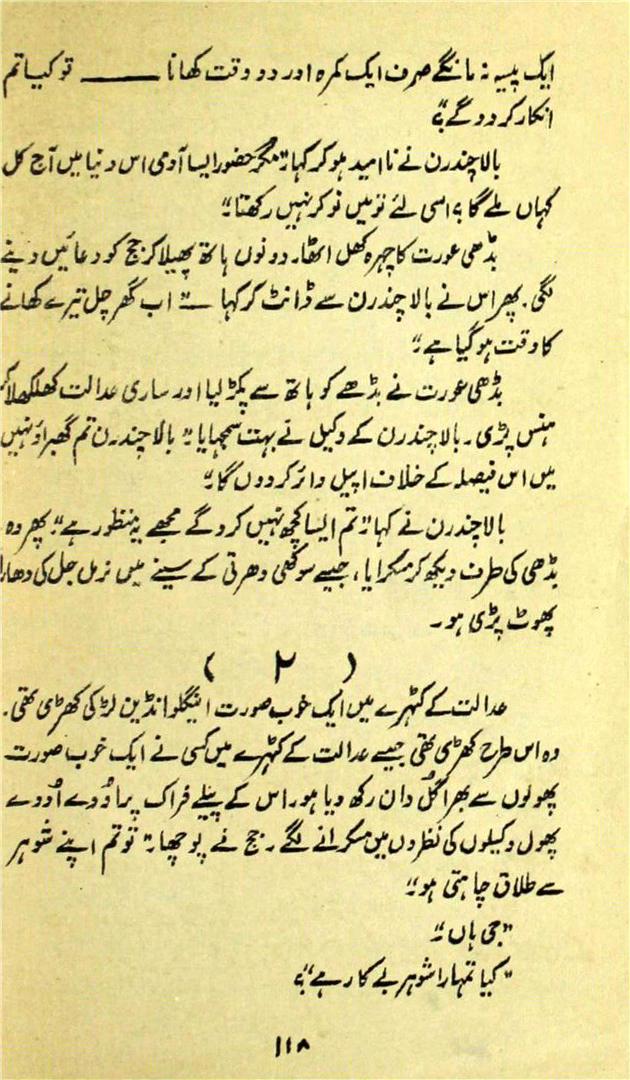 ایک پیسہ نہ مانگے صرف ایک کمرہ اور دو وقت کھانا ——— تو کیا تم
انکار کر دو گے؟"
بالاچندرن نے نا امید ہو کر کہا۔" مگر حضور ایسا آدمی اس دنیا میں آج کل
کہاں ملے گا؟ اسی لئے تو میں نوکر نہیں رکھتا۔"
بڈھی عورت کا چہرہ کھل اٹھا۔ دونوں ہاتھ پھیلا کر جج کو دعائیں دینے
لگی۔ پھر اس نے بالا چندرن سے ڈانٹ کر کہا —" اب گھر چل تیرے کھانے
کا وقت ہو گیا ہے۔"
بڈھی عورت نے بڈھے کو ہاتھ سے پکڑ لیا اور ساری عدالت کھلکھلا کر
ہنس پڑی۔ بالا چندرن کے وکیل نے بہت سمجھایا۔" بالا چندرن تم گھبراؤ نہیں
میں اس فیصلہ کے خلاف اپیل دائر کر دوں گا۔"
بالا چندرن نے کہا۔" تم ایسا کچھ نہیں کرو گے مجھے یہ منظور ہے۔" پھر وہ
بڈھی کی طرف دیکھ کر مسکرایا، جیسے سوکھی دھرتی کے سینے میں نرمل جل کی دھارا
پھوٹ پڑی ہو۔
( ۲ )
عدالت کے کٹہرے میں ایک خوب صورت اینگلو انڈین لڑکی کھڑی تھی۔
وہ اس طرح کھڑی تھی جیسے عدالت کے کٹہرے میں کسی نے ایک خوب صورت
پھولوں سے بھرا گل دان رکھ دیا ہو۔ اس کے پیلے فراک پر اُودے اُودے
پھول وکیلوں کی نظروں میں مسکرانے لگے۔ جج نے پوچھا۔" تو تم اپنے شوہر
سے طلاق چاہتی ہو۔"
"جی ہاں۔"
"کیا تمہارا شوہر بے کار ہے"؟
۱۱۸